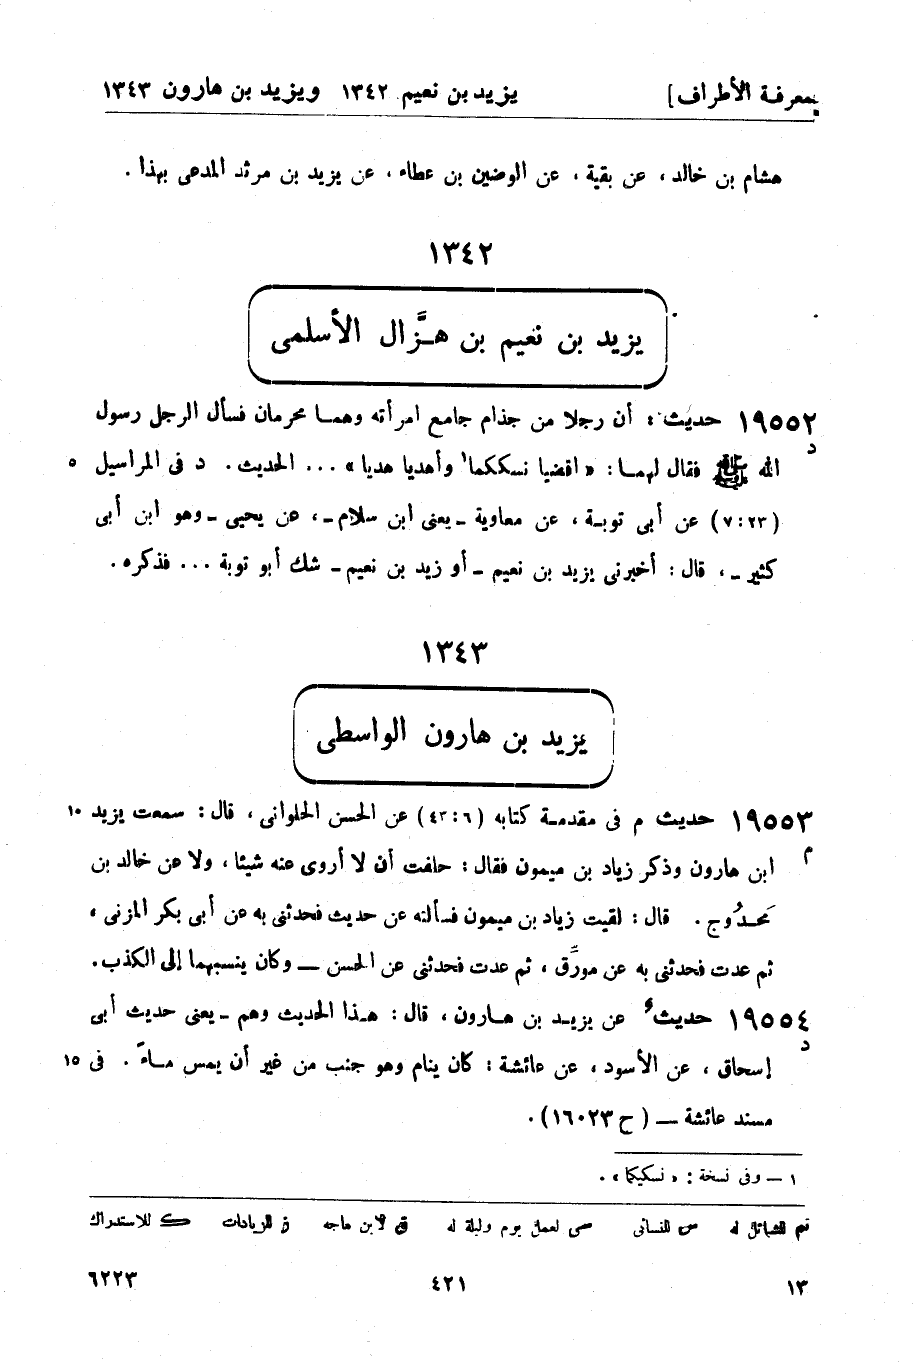 بمعرفة الأطراف] يزيد بن نعيم ١٣٤٢ ويزيد بن هارون ١٣٤٣
هشام بن خالد، عن بقية، عن الوضين بن عطاء، عن يزيد بن مرثد المدعى بهذا.
١٣٤٢
يزيد بن نعيم بن هـزَّال الأسلمى
١٩٥٥٢ حديث: أن رجلا من جذام جامع امرأته وهما محرمان فسأل الرجل رسول
د
الله ﷺ فقال لهما: «اقضيا نسككما١ وأهديا هديا» ... الحديث. د فى المراسيل ٥
(٧:٢٣) عن أبى توبة، عن معاوية ـ يعنى ابن سلام ـ، عن يحيى ـ وهو ابن أبى
كثير ـ، قال: أخبرنى يزيد بن نعيم ـ أو زيد بن نعيم ـ شك أبو توبة ... فذكره.
١٣٤٣
يزيد بن هارون الواسطى
١٩٥٥٣ حديث م فى مقدمة كتابه (٤٣:٦) عن الحسن الحلوانى، قال: سمعت يزيد ١٠
م
ابن هارون وذكر زياد بن ميمون فقال: حلفت أن لا أروى عنه شيئا، ولا عن خالد بن
مَحـدُوج. قال: لقيت زياد بن ميمون فسألته عن حديث فحدثنى به عن أبى بكر المزنى،
ثم عدت فحدثنى به عن مورِّق، ثم عدت فحدثنى عن الحسن ــ وكان ينسبهما إلى الكذب.
١٩٥٥٤ حديث عن يزيد بن هارون، قال: هذا الحديث وهم ـ يعنى حديث أبى
د
إسحاق، عن الأسود، عن عائشة: كان ينام وهو جنب من غير أن يمس ماءً. فى ١٥
مسند عائشة ــ (ح ١٦٠٢٣).
١ ــ وفى نسخة: «نسكيكما».
تم للشمائل له س للنسائى سى لعمل يوم وليلة له ق لابن ماجه ز للزيادات ك للاستدراك
١٣ ٤٢١ ٦٢٢٣